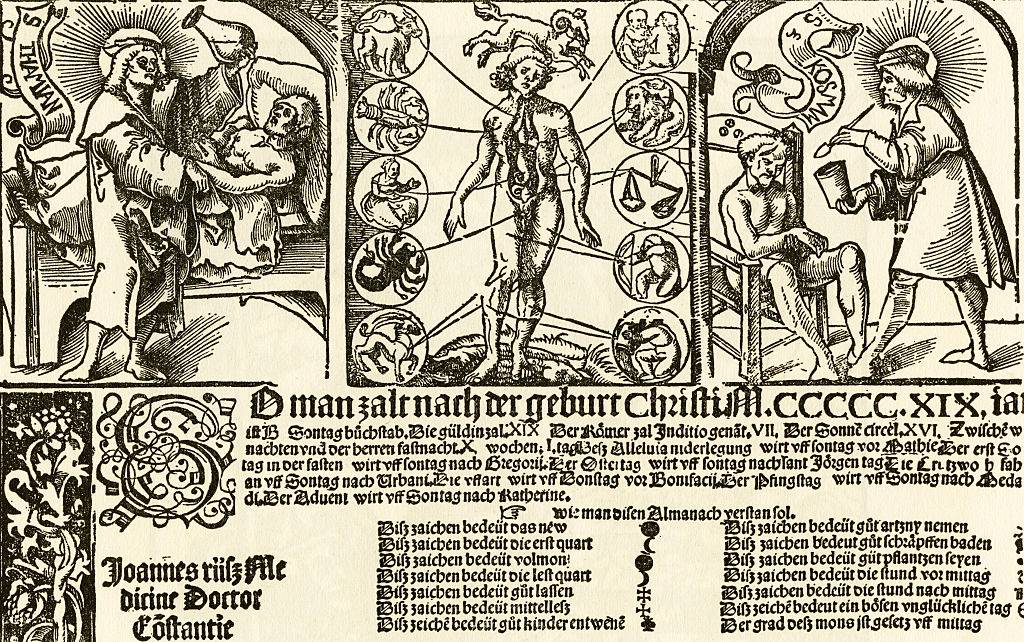 S
DAMIAN
S
KOSMAN
SO man zalt nach der geburt Christi M.CCCCC.XIX, iar
ist B Sontag bůchstab. Die güldin zal. XIX Der Römer zal Inditio genãt. VII. Der Sonnẽ circel. XVI. Zwischẽ w
nachten vnd der herren fastnacht. X wochen: I. tag Beß Alleluia niderlegung wirt vff sontag vor Mathie Der erst So
tag in der fasten wirt vff sontag nach Gregorij. Der Ostertag wirt vff sontag nach sant Jörgen tag Die Crutzwoch fah
an vff Sontag nach Urbani. Die vffart wirt vff Donstag vor Bonifacij. Der Pfingstag wirt vff Sontag nach Meda
di. Der Aduent wirt vff Sontag nach Katherine.
☞ wie man disen Almanach verstan sol.
Diß zaichen bedeüt das new
Diß zaichen bedeüt die erst quart
Diß zaichen bedeüt volmon
Diß zaichen bedeüt die lest quart
Diß zaichen bedeüt gůt lassen
Diß zaichen bedeüt mitteleß
Diß zeichẽ bedeüt gůt kinder entwenẽ
Diß zaichen bedeüt gůt artzny nemen
Diß zaichen bedeut gůt schräpffen baden
Diß zaichen bedeüt gůt pflantzen seyen
Diß zaichen bedeüt die stund vor mittag
Diß zaichen bedeüt die stund nach mittag
Diß zeichẽ bedeut ein bösen vnglücklichẽ tag
Der grad deß mons ist gesetz vff mittag
Joannes rüsz Me
dicine Doctor
Cõstantie